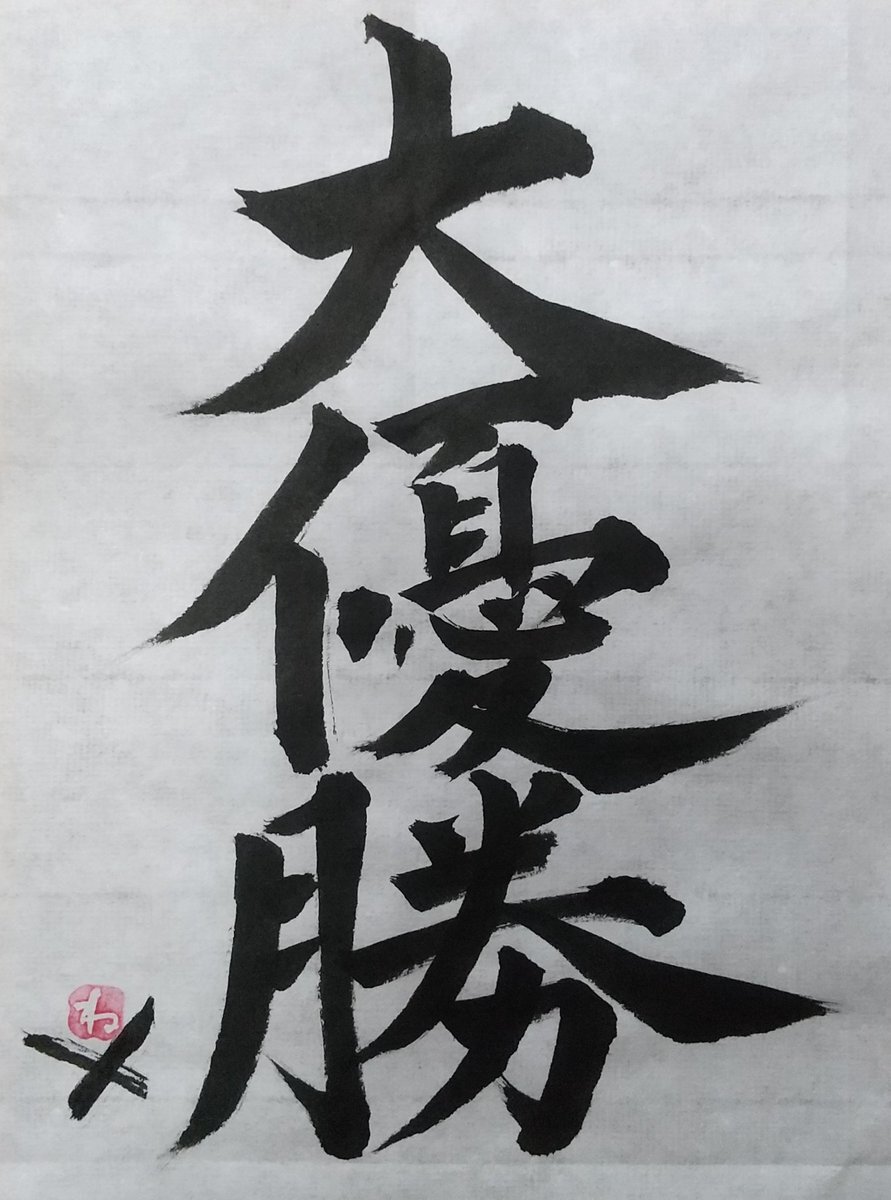 大優勝
わ
メ